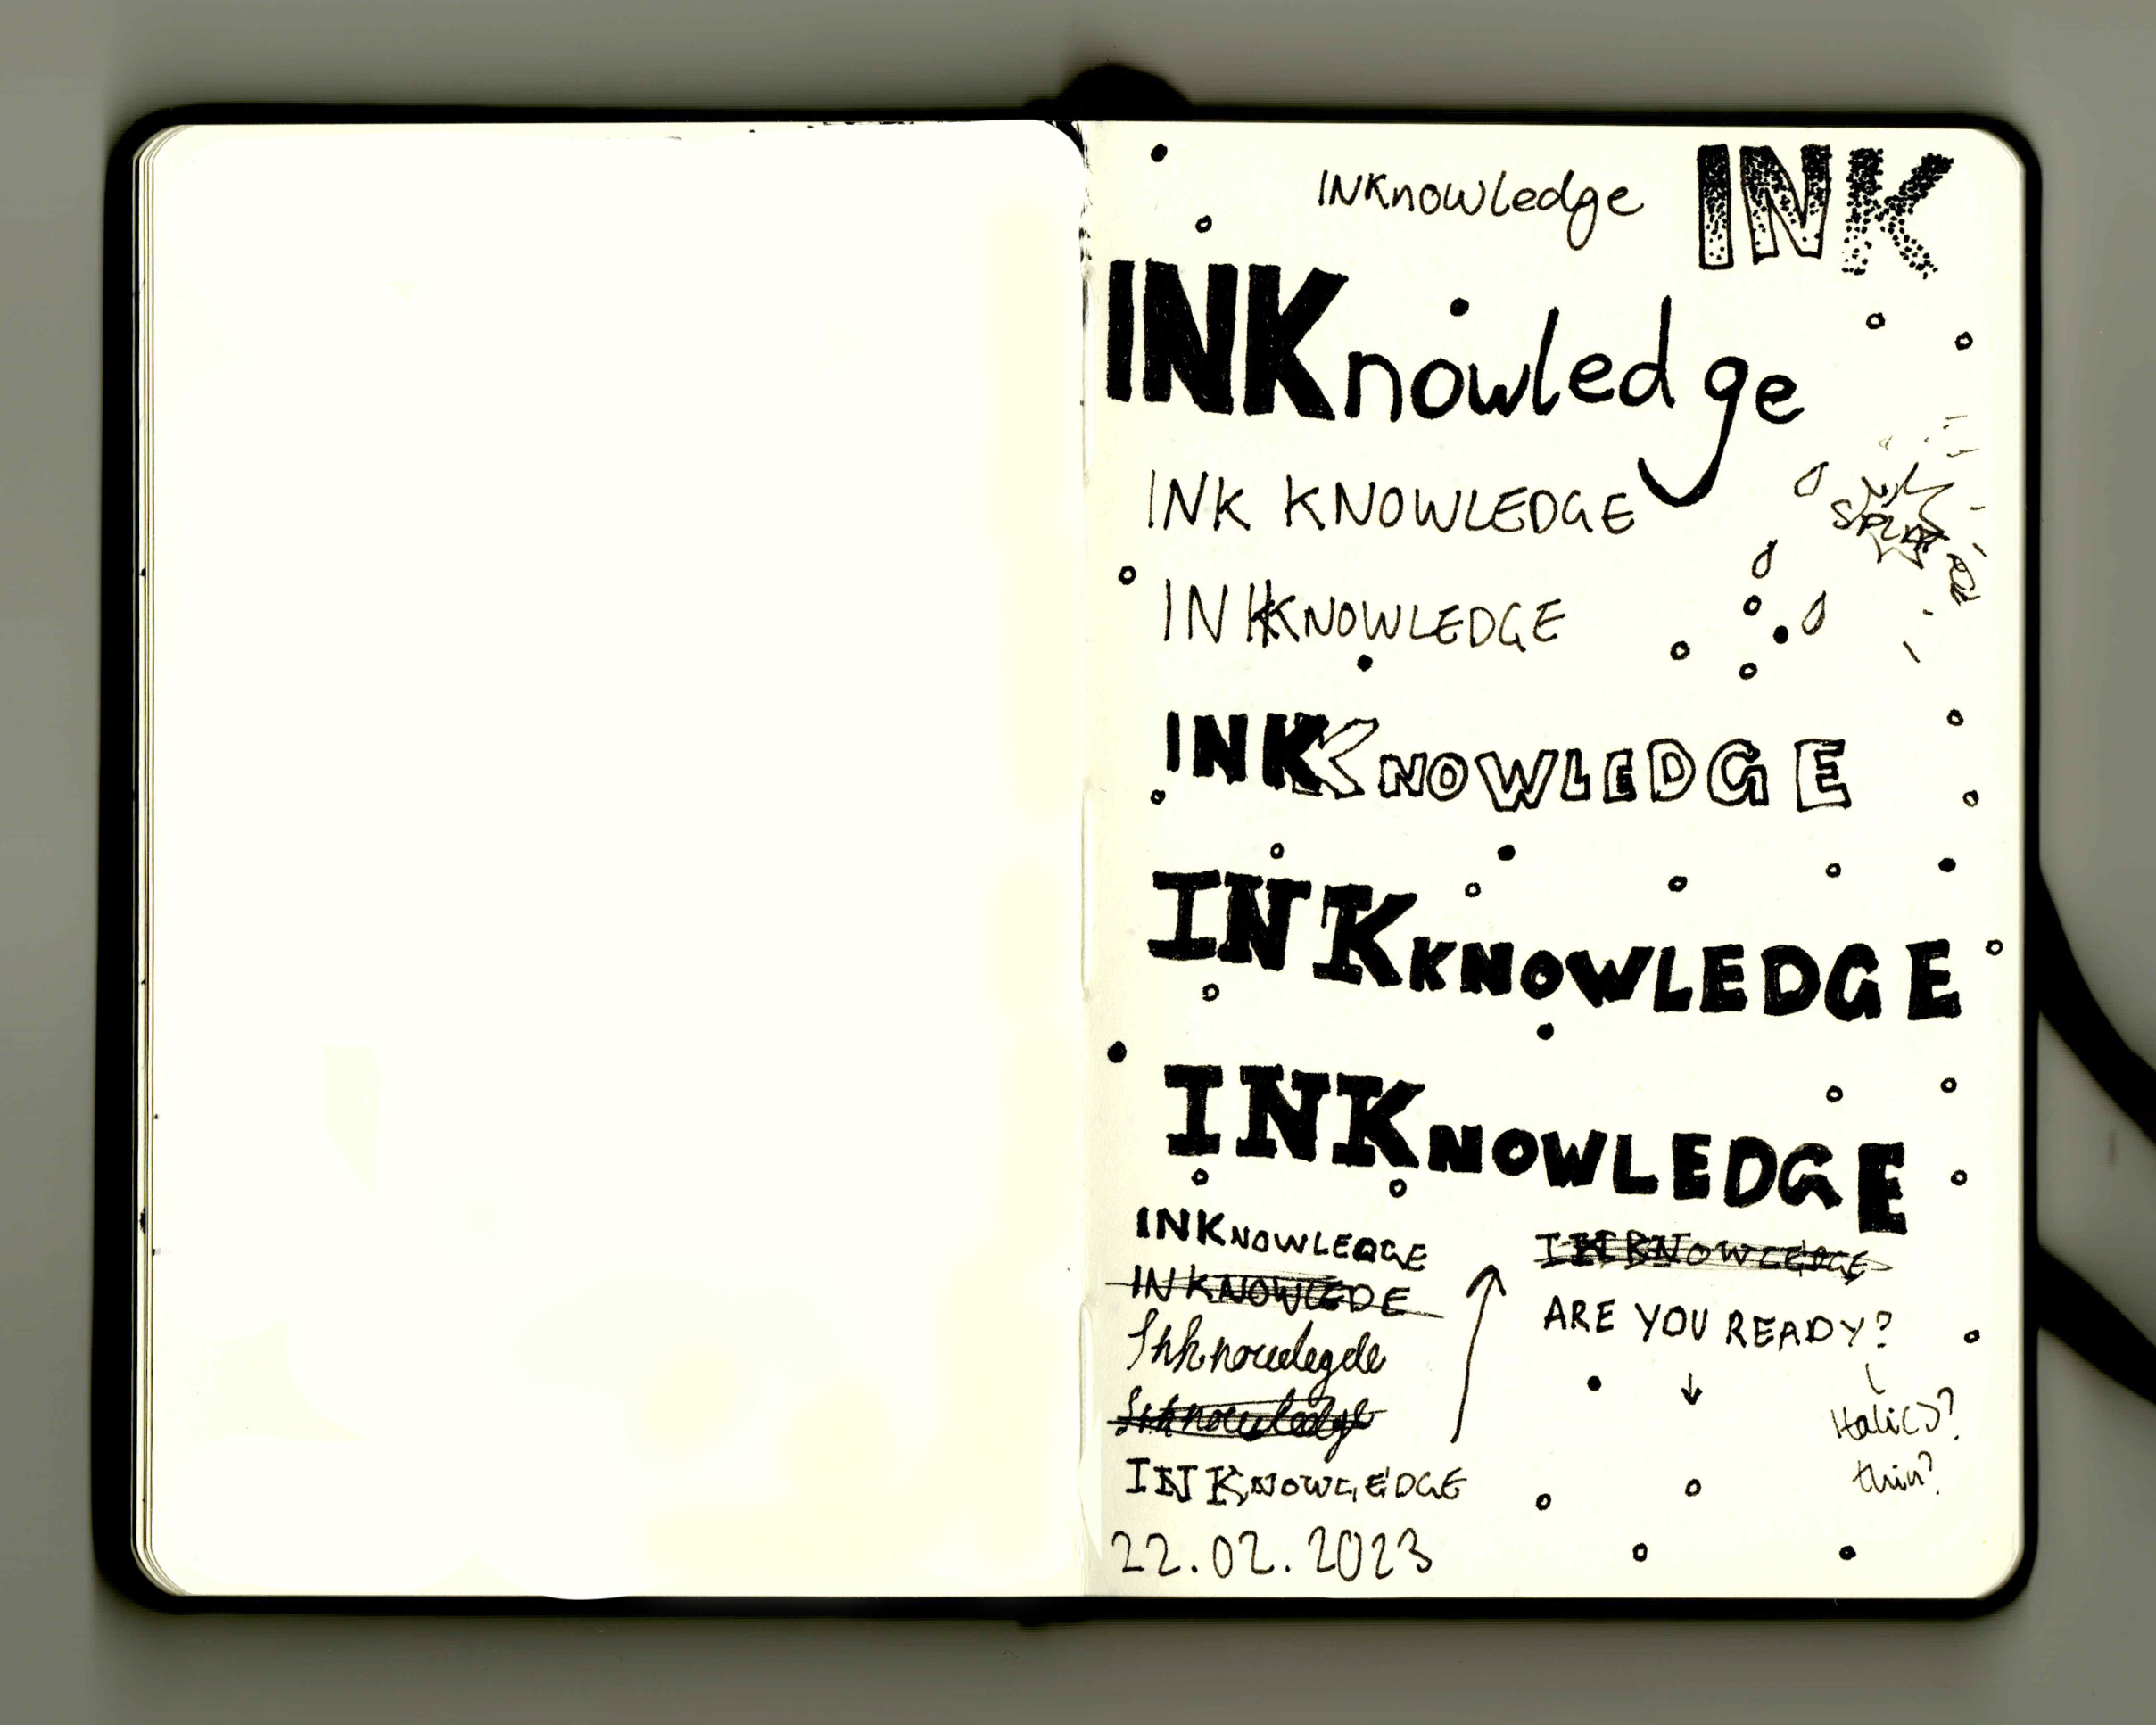 INKnowledge INK
INKnowledge
INK KNOWLEDGE
SPLAT
INKKNOWLEDGE
INKKNOWLEDGE
INKKNOWLEDGE
INKNOWLEDGE
INKNOWLEDGE
INKNOWLEDE
Inknowlegde
Inknowledge
INKNOWLEDGE
22.02.2023
ARE YOU READY?
Italics?
thin?